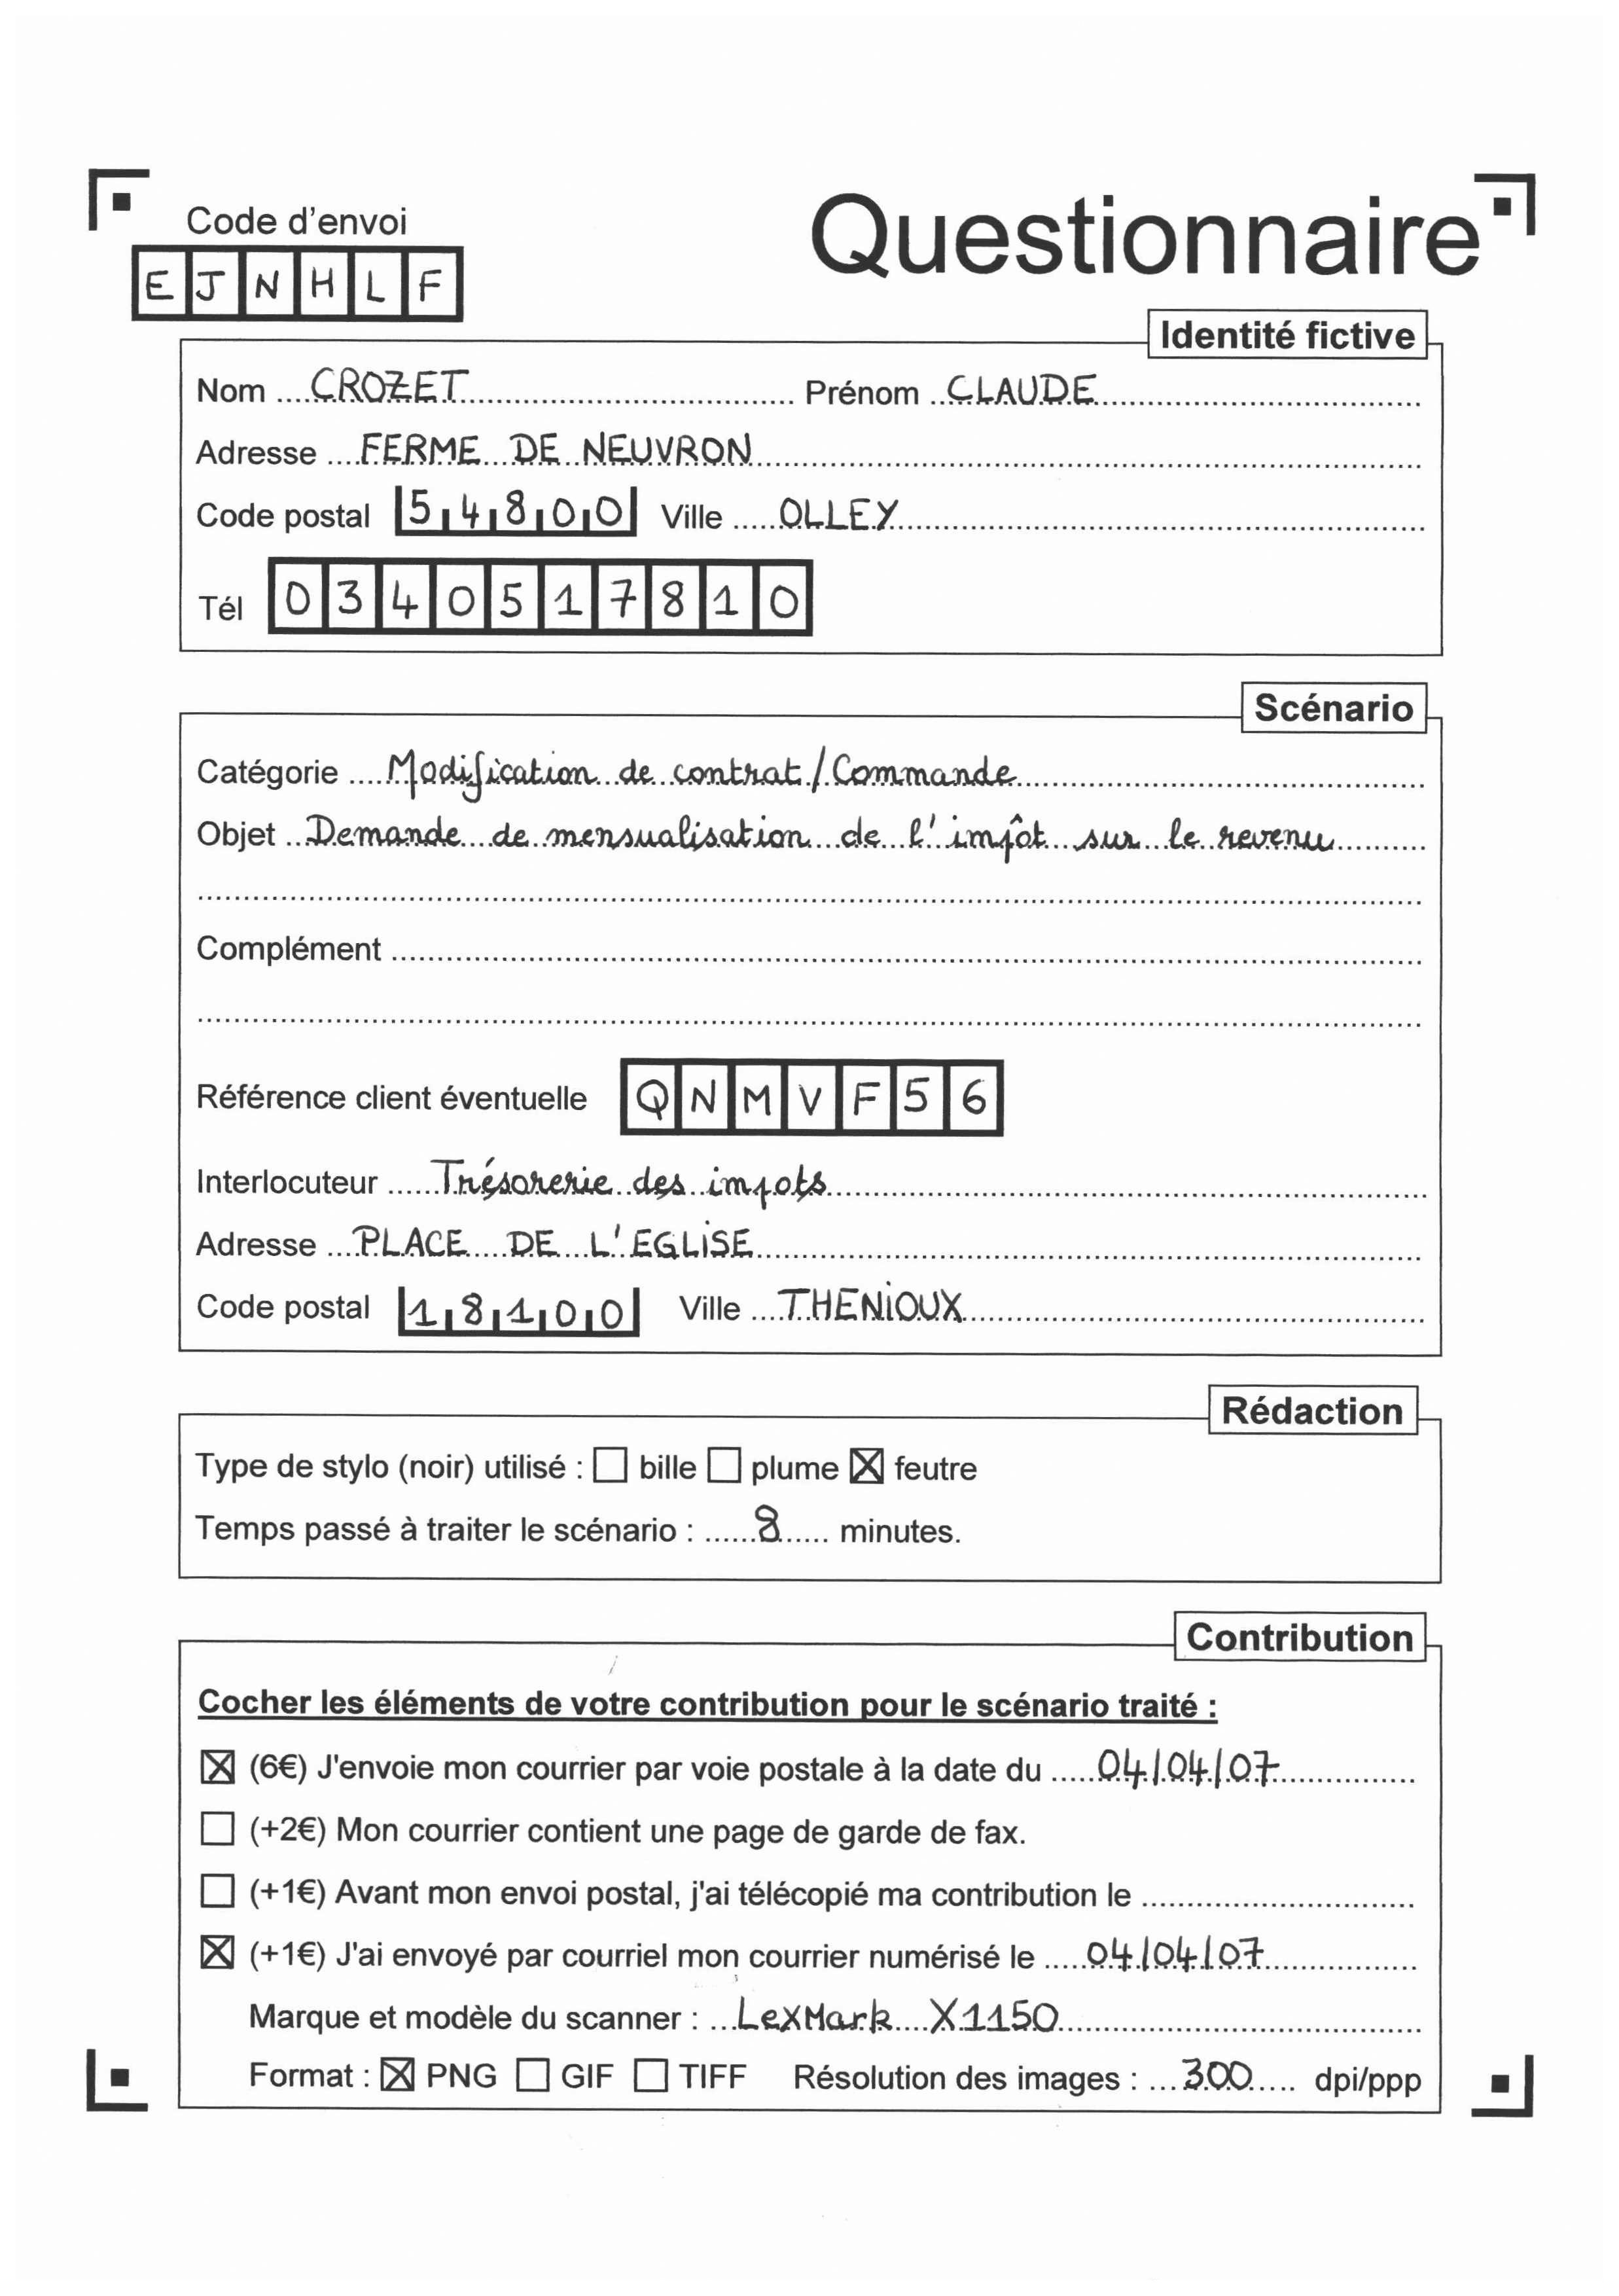 Code d'envoi
Questionnaire
E J N H L F
Identité fictive
Nom CROZET Prénom CLAUDE
Adresse FERME DE NEUVRON
Code postal 54800 Ville OLLEY
Tél 0340517810
Scénario
Catégorie Modification de contrat/Commande
Objet Demande de mensualisation de l'impôt sur le revenu
Complément
Référence client éventuelle QNMVF56
Interlocuteur Trésorerie des impots
Adresse PLACE DE L'EGLISE
Code postal 18100 Ville THENIOUX
Rédaction
Type de stylo (noir) utilisé : ☐ bille ☐ plume ☒ feutre
Temps passé à traiter le scénario : 8 minutes.
Contribution
Cocher les éléments de votre contribution pour le scénario traité :
☒ (6€) J'envoie mon courrier par voie postale à la date du 04/04/07
☐ (+2€) Mon courrier contient une page de garde de fax.
☐ (+1€) Avant mon envoi postal, j'ai télécopié ma contribution le
☒ (+1€) J'ai envoyé par courriel mon courrier numérisé le 04/04/07
Marque et modèle du scanner : LexMark X1150
Format : ☒ PNG ☐ GIF ☐ TIFF Résolution des images : 300 dpi/ppp